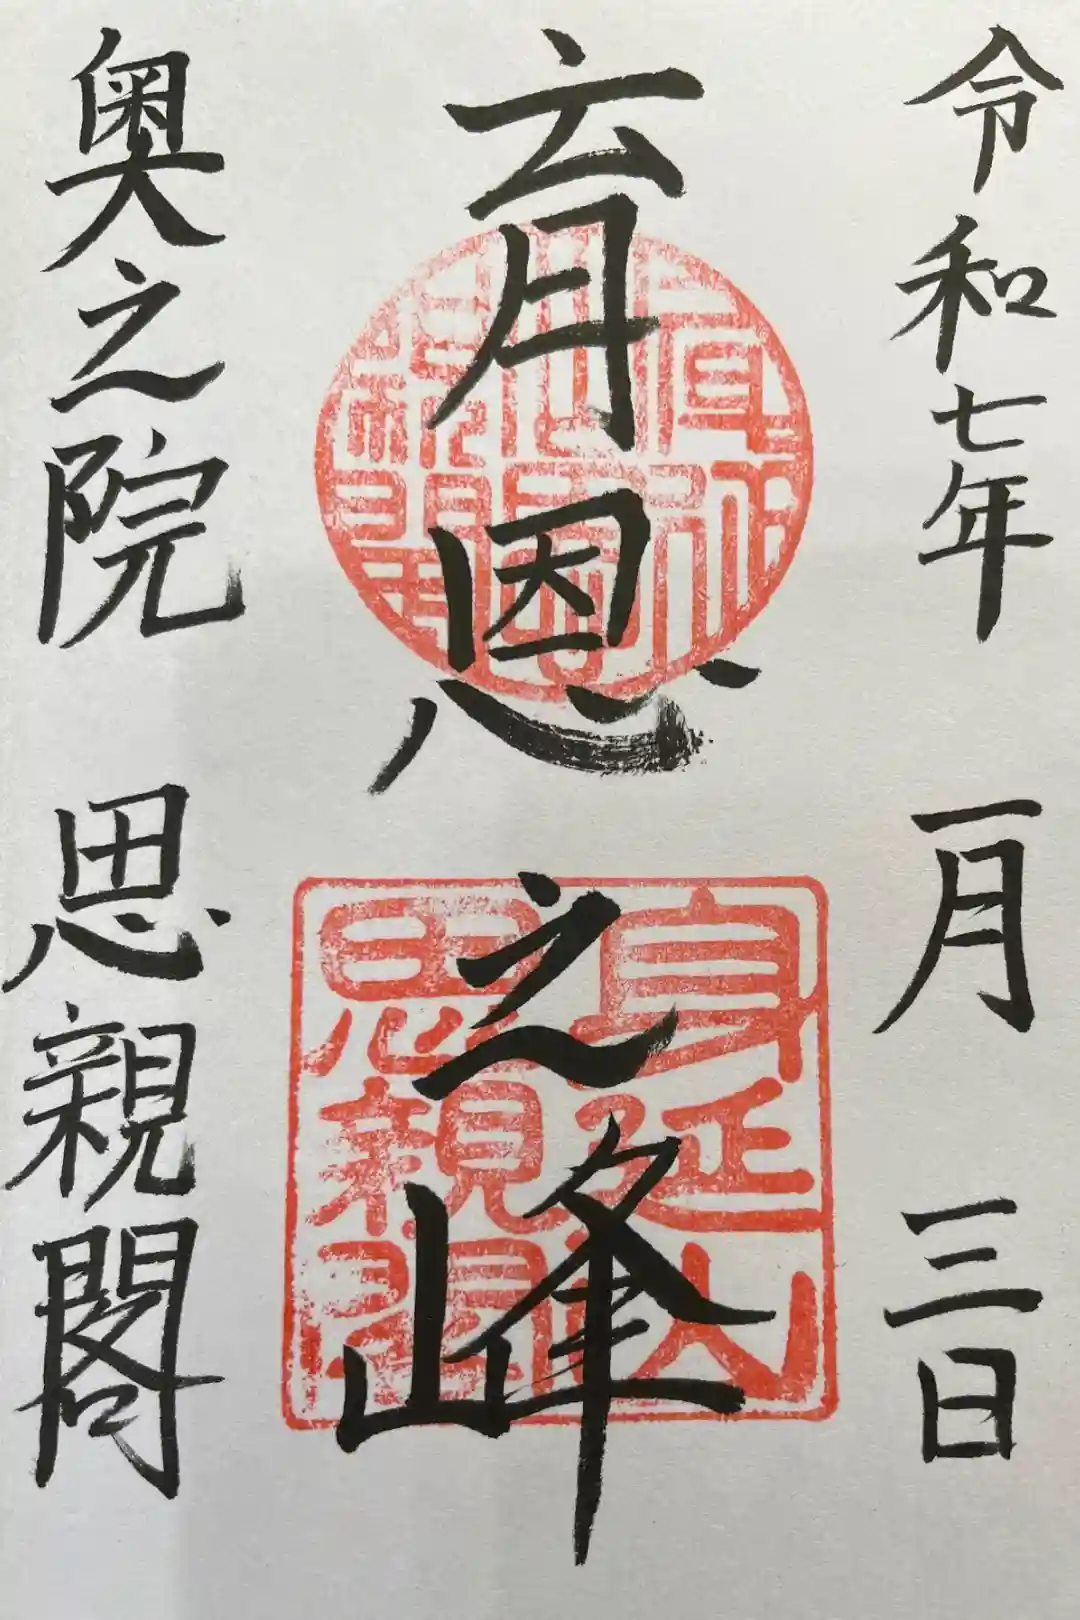 令和七年 一月 三日
育恩之峰
奥之院 思親閣
身延山
思親閣